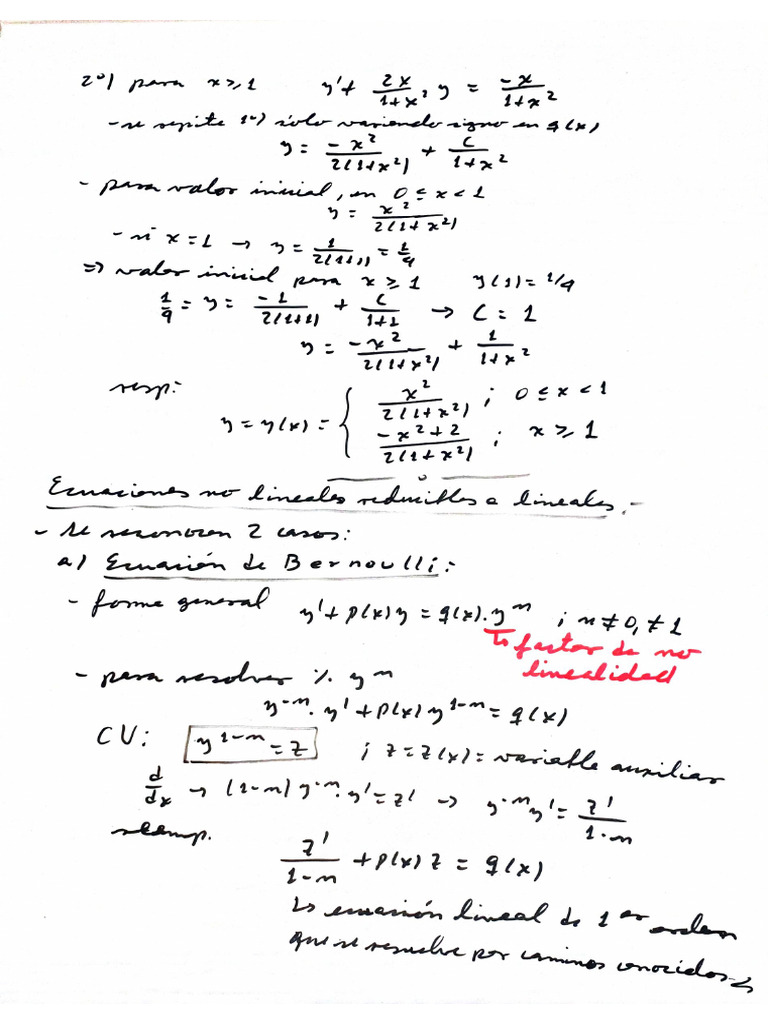 2º) para x ≥ 1 y' + 2x/(1+x²) y = -x/(1+x²)
- se repite 1º) sólo variendo signo en q(x)
y = -x²/(2(1+x²)) + C/(1+x²)
- para valor inicial, en 0 ≤ x < 1
y = x²/(2(1+x²))
- si x = 1 → y = 1/(2(1+1)) = 1/4
⇒ valor inicial para x ≥ 1 y(1) = 1/4
1/4 = y = -1/(2(1+1)) + C/(1+1) → C = 1
y = -x²/(2(1+x²)) + 1/(1+x²)
resp: y = y(x) = { x²/(2(1+x²)) ; 0 ≤ x < 1
(-x²+2)/(2(1+x²)) ; x ≥ 1
Ecuaciones no lineales reducibles a lineales.-
- Se reconocen 2 casos:
a) Ecuación de Bernoulli:-
- forma general y' + p(x)y = q(x).yⁿ ; n ≠ 0, ≠ 1
↳ factor de no
linealidad
- para resolver %. yⁿ
y⁻ⁿ.y' + p(x)y¹⁻ⁿ = q(x)
CV: y¹⁻ⁿ = z ; z = z(x) = variable auxiliar
d/dx → (1-n)y⁻ⁿ.y' = z' → y⁻ⁿy' = z'/(1-n)
reemp.
z'/(1-n) + p(x)z = q(x)
↳ ecuación lineal de 1er orden
que se resuelve por caminos conocidos